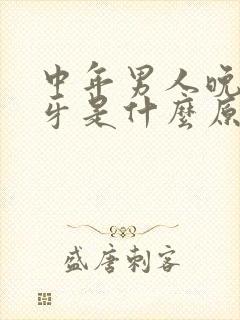 中年男人晚
牙是什麼原
盛唐刺客